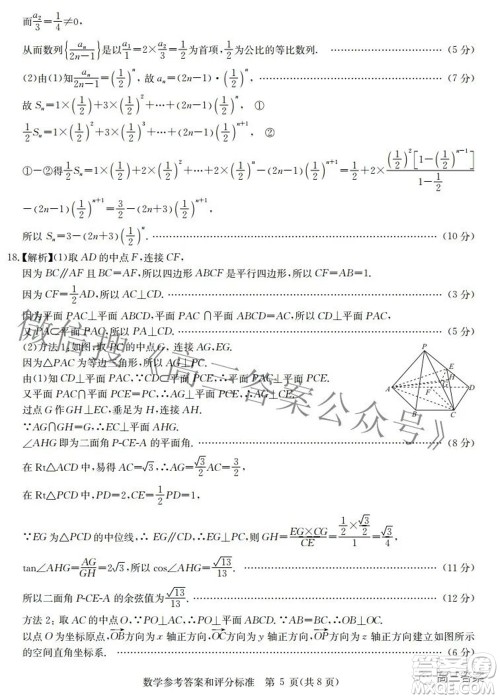 而a₂/3=1/4≠0,
从而数列{aₙ/(2n-1)}是以a₁/1=2×a₂/3=1/2为首项,1/2为公比的等比数列. ……(5 分)
(2)由(1)知aₙ/(2n-1)=(1/2)ⁿ, 故aₙ=(2n-1)·(1/2)ⁿ, ……(7 分)
故 Sₙ=1×(1/2)+3×(1/2)²+…+(2n-1)(1/2)ⁿ, ①
1/2Sₙ=1×(1/2)²+3×(1/2)³+…+(2n-1)(1/2)ⁿ⁺¹, ②
①-②得1/2Sₙ=1×(1/2)+2×(1/2)²+…+2×(1/2)ⁿ-(2n-1)(1/2)ⁿ⁺¹=1/2+2×((1/2)²[1-(1/2)ⁿ⁻¹])/(1-1/2)
-(2n-1)(1/2)ⁿ⁺¹=3/2-(2n+3)(1/2)ⁿ⁺¹,
所以 Sₙ=3-(2n+3)(1/2)ⁿ. ……(10 分)
18.【解析】(1)取 AD 的中点 F,连接 CF,
因为 BC∥AF 且 BC=AF,所以四边形 ABCF 是平行四边形,所以 CF=AB=1.
因为 CF=1/2AD,所以 AC⊥CD. ……(3 分)
因为平面 PAC⊥平面 ABCD,平面 PAC∩平面 ABCD=AC,所以 CD⊥平面 PAC,
又 PA⊂平面 PAC,所以 PA⊥CD. ……(5 分)
(2)方法 1:如图,取 PC 的中点 G,连接 AG,EG.
因为△PAC 为等边三角形,所以 AG⊥PC.
由(1)知 CD⊥平面 PAC,所以平面 PCE⊥平面 PAC.
又平面 PAC∩平面 PCE=PC,所以 AG⊥平面 PCE,所以 AG⊥CE.
过点 G 作 GH⊥EC,垂足为 H,连接 AH.
∵AG∩GH=G,∴CE⊥平面 AHG,
∠AHG 即为二面角 P-CE-A 的平面角. ……(8 分)
在 Rt△ACD 中,易得 AC=√3,∴AG=√3/2 AC=3/2.
在 Rt△PCD 中,PD=2,CE=1/2PD=1.
∵EG 为△PCD 的中位线,∴EG∥CD,∴EG⊥PC,则 GH=(EG×CG)/CE=(1/2×√3/2)/1=√3/4,
tan∠AHG=AG/GH=2√3,所以 cos∠AHG=√13/13.
所以二面角 P-CE-A 的余弦值为√13/13. ……(12 分)
方法 2:取 AC 的中点 O,∵PO⊥AC,∴PO⊥平面 ABCD. ∵AB=BC,∴OB⊥AC.
以点 O 为坐标原点,OB方向为 x 轴正方向,OC方向为 y 轴正方向,OP方向为 z 轴正方向,
建立空间直角坐标系. ……(6 分)
P
E
H
G
D
A
F
B
C
微信搜《高三答案公众号》
数学参考答案和评分标准 第 5 页(共 8 页)
高三答案